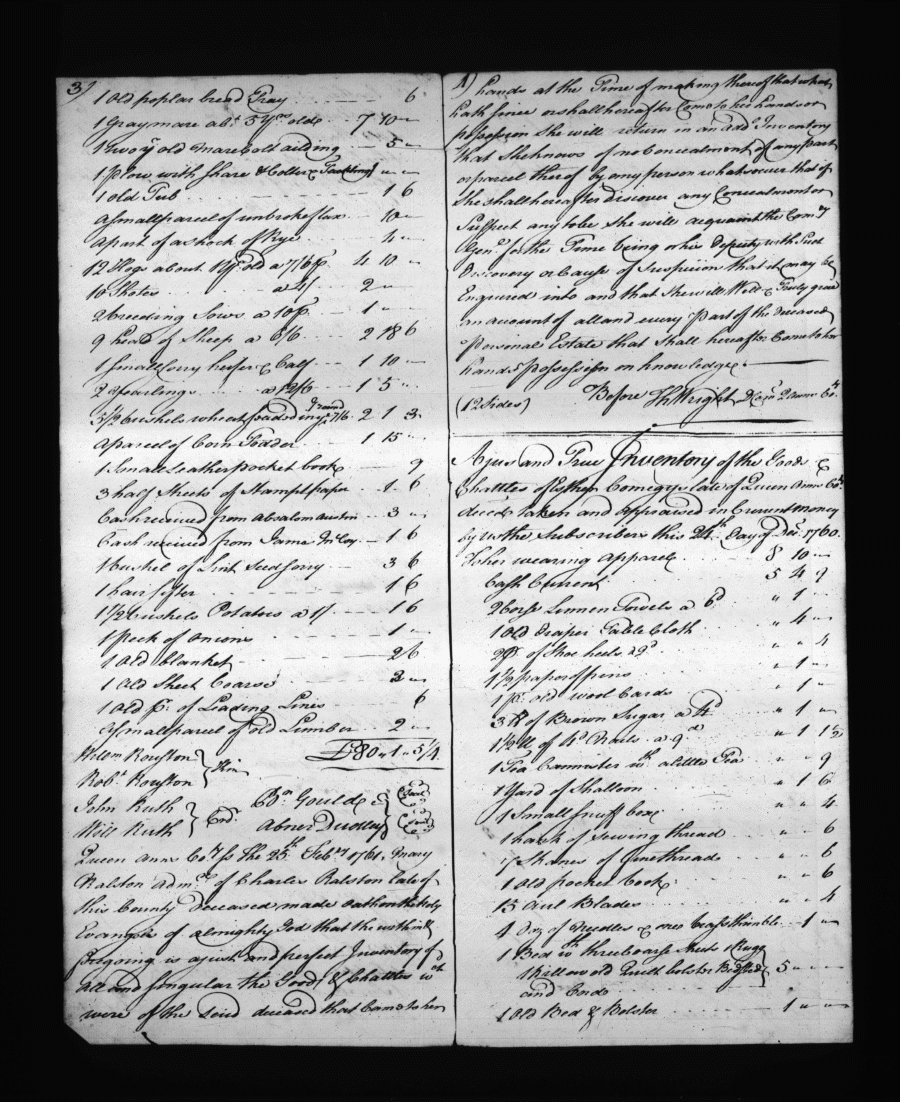 3)
1 Old poplar bread Tray 6
1 Gray mare abt. 5 yrs old 7 10 —
1 two yr old mare Colt aiding 5 —
1 plow with Share & Collers
1 old Tub 1 6
a small parcel of unbroke flax 10 —
a part of a shock of Rye 4 —
12 Hogs about 1 yr. old a 7/6 p. 4 10 —
10 Shotes a 4/ 2 —
2 breeding Sows a 10/ p. 1 —
9 head of Sheep a 6/6 2 18 6
1 Small Sorry heifer & Calf 1 10 —
2 Yearlings a 12/6 1 5 —
5 1/2 bushels wheat in ye ground 7/6 2 1 3
a parcel of Corn Fodder 1 15 —
1 Small Leather pocket book 9
3 half Sheets of Stampt paper 1 6
Cash received from Absalom Austin 3 —
Cash received from Jame McCoy 1 6
1 bushel of Lint Seed Sorry 3 6
1 hair Sifter 1 6
1 1/2 bushels Potatoes a 1/ 1 6
1 peck of Onions 1 —
1 Old blanket 2 6
1 Old Sheet Coarse 2 —
1 Old pr. of Leading Lines 6
a Small parcel of old Lumber 2 —
Willm Rouston } Kin £80 „ 1 „ 5 1/4
Robt. Rouston
John Ruth } Crds. Bo. Gould (Seal)
Will Ruth Abner Dudley (Seal)
Queen Anns Coty. ss The 25th Febry 1761, Mary
Ralston Admx. of Charles Ralston Late of
this County Deceased made oath on the Holy
Evangels of almighty God that the within &
foregoing is a just and perfect Inventory of
all and Singular the Goods & Chattles
were of the Said deceased that Came to her
4) hands at the Time of making thereof that what
hath Since or shall hereafter Come to her hands or
possession She will return in an addl. Inventory
that She knows of no Concealment of any part
or parcel thereof by any person whatsoever that if
She shall hereafter discover any Concealment or
Suspect any to be She will acquaint the Comry
Genl for the Time being or his Deputy with Such
discovery or Cause of Suspicion that it may be
Enquired into and that She will Well & Truly give
an account of all and every Part of the deceased
personal Estate that Shall hereafter Come to her
hands possession or knowledge.
(12 Sides) Before Th Wright Dcoy. Q Anns Coty.
A Just and True Inventory of the Goods &
Chattles of Esther Comegys late of Queen Anns Coty.
deced Taken and appraised in Current money
by us the Subscribers this 24th Day of Decr. 1760.
To her wearing apparel 8 10 —
Cash Current 5 4 9
2 Corse Linnen Towels a 6d „ 1 —
1 Old Draper Table Cloth „ 4 —
2 p. of Shoe heels 2d „ „ 4
1 1/2 paper of pins „ 1 —
1 pr. old wool Cards „ 1 —
3 lb of Brown Sugar a 4d „ 1 —
1 1/2 M of 4d Nails a 9d „ 1 1 1/2
1 Tea Cannister wth. a little Tea „ „ 9
1 Yard of Shalloon „ 1 6
1 Small Snuff box „ „ 4
1 hank of Sewing thread „ „ 6
17 Skanes of fine thread „ „ 6
1 Old pocket book „ „ 6
15 Aul Blades „ „ 4
4 Doz of Needles & one brass thimble 1 —
1 Bed wth three Coarse Sheets 1 Rugg
1 old Quilt bolster Bedsted } 5 —
and Cords
1 Old Bed & Bolster 1 — —